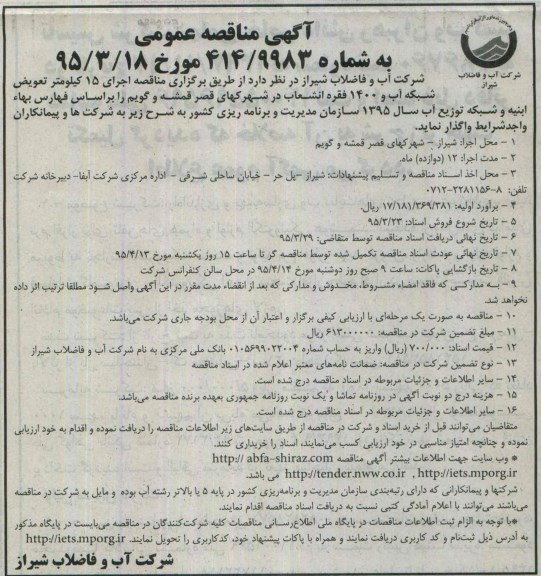 آگهی مناقصه عمومی
به شماره ۴۱۴/۹۹۸۳ مورخ ۹۵/۳/۱۸
شرکت آب و فاضلاب شیراز
شرکت آب و فاضلاب شیراز در نظر دارد از طریق برگزاری مناقصه اجرای ۱۵ کیلومتر تعویض
شبکه آب و ۱۴۰۰ فقره انشعاب در شهرکهای قصر قمشه و گویم را براساس فهارس بهاء
ابنیه و شبکه توزیع آب سال ۱۳۹۵ سازمان مدیریت و برنامه ریزی کشور به شرح زیر به شرکت ها و پیمانکاران
واجدشرایط واگذار نماید.
۱ - محل اجرا: شیراز - شهرکهای قصر قمشه و گویم
۲ - مدت اجرا: ۱۲ (دوازده) ماه.
۳ - محل اخذ اسناد مناقصه و تسلیم پیشنهادات: شیراز -پل حر - خیابان ساحلی شرقی - اداره مرکزی شرکت آبفا- دبیرخانه شرکت
تلفن: ۸-۲۲۸۱۱۵۶-۰۷۱۲
۴ - برآورد اولیه: ۱۷/۱۸۱/۳۶۹/۳۸۱ ریال.
۵ - تاریخ شروع فروش اسناد: ۹۵/۳/۲۳
۶ - تاریخ نهائی دریافت اسناد مناقصه توسط متقاضی: ۹۵/۳/۲۹
۷ - تاریخ نهائی عودت اسناد مناقصه تکمیل شده توسط مناقصه گر تا ساعت ۱۵ روز یکشنبه مورخ ۹۵/۴/۱۳
۸ - تاریخ بازگشایی پاکات: ساعت ۹ صبح روز دوشنبه مورخ ۹۵/۴/۱۴ در محل سالن کنفرانس شرکت
۹ - به مدارکی که فاقد امضاء مشروط، مخدوش و مدارکی که بعد از انقضاء مدت مقرر در این آگهی واصل شود مطلقا ترتیب اثر داده
نخواهد شد.
۱۰ - مناقصه به صورت یک مرحله‌ای با ارزیابی کیفی برگزار و اعتبار آن از محل بودجه جاری شرکت می‌باشد.
۱۱ - مبلغ تضمین شرکت در مناقصه: ۶۱۳۰۰۰۰۰۰ ریال
۱۲ - قیمت اسناد: ۷۰۰/۰۰۰ (ریال) واریز به حساب شماره ۰۱۰۵۶۹۹۰۲۲۰۰۴ بانک ملی مرکزی به نام شرکت آب و فاضلاب شیراز
۱۳ - نوع تضمین شرکت در مناقصه: ضمانت نامه‌های معتبر اعلام شده در اسناد مناقصه
۱۴ - سایر اطلاعات و جزئیات مربوطه در اسناد مناقصه درج شده است.
۱۵ - هزینه درج دو نوبت آگهی در روزنامه تماشا و یک نوبت روزنامه جمهوری بعهده برنده مناقصه می‌باشد.
۱۶ - سایر اطلاعات و جزئیات مربوطه در اسناد مناقصه درج شده است.
متقاضیان می‌توانند قبل از خرید اسناد و شرکت در مناقصه از طریق سایت‌های زیر اطلاعات مناقصه را دریافت نموده و اقدام به خود ارزیابی
نموده و چنانچه امتیاز مناسبی در خود ارزیابی کسب می‌نمایند، اسناد را خریداری کنند.
* وب سایت جهت اطلاعات بیشتر آگهی مناقصه http:// abfa-shiraz.com
http://tender.nww.co.ir , http://iets.mporg.ir می باشد.
شرکتها و پیمانکارانی که دارای رتبه‌بندی سازمان مدیریت و برنامه‌ریزی کشور در پایه ۵ یا بالاتر رشته آب بوده و مایل به شرکت در مناقصه
می‌باشند می‌توانند با اعلام آمادگی کتبی نسبت به دریافت اسناد مناقصه اقدام نمایند.
*با توجه به الزام ثبت اطلاعات مناقصات در پایگاه ملی اطلاع‌رسانی مناقصات کلیه شرکت‌کنندگان در مناقصه می‌بایست در پایگاه مذکور
به آدرس ذیل ثبت‌نام و کد کاربری دریافت نمایند و همراه با پاکات پیشنهاد خود، کدکاربری را تحویل نمایند. http://iets.mporg.ir
شرکت آب و فاضلاب شیراز